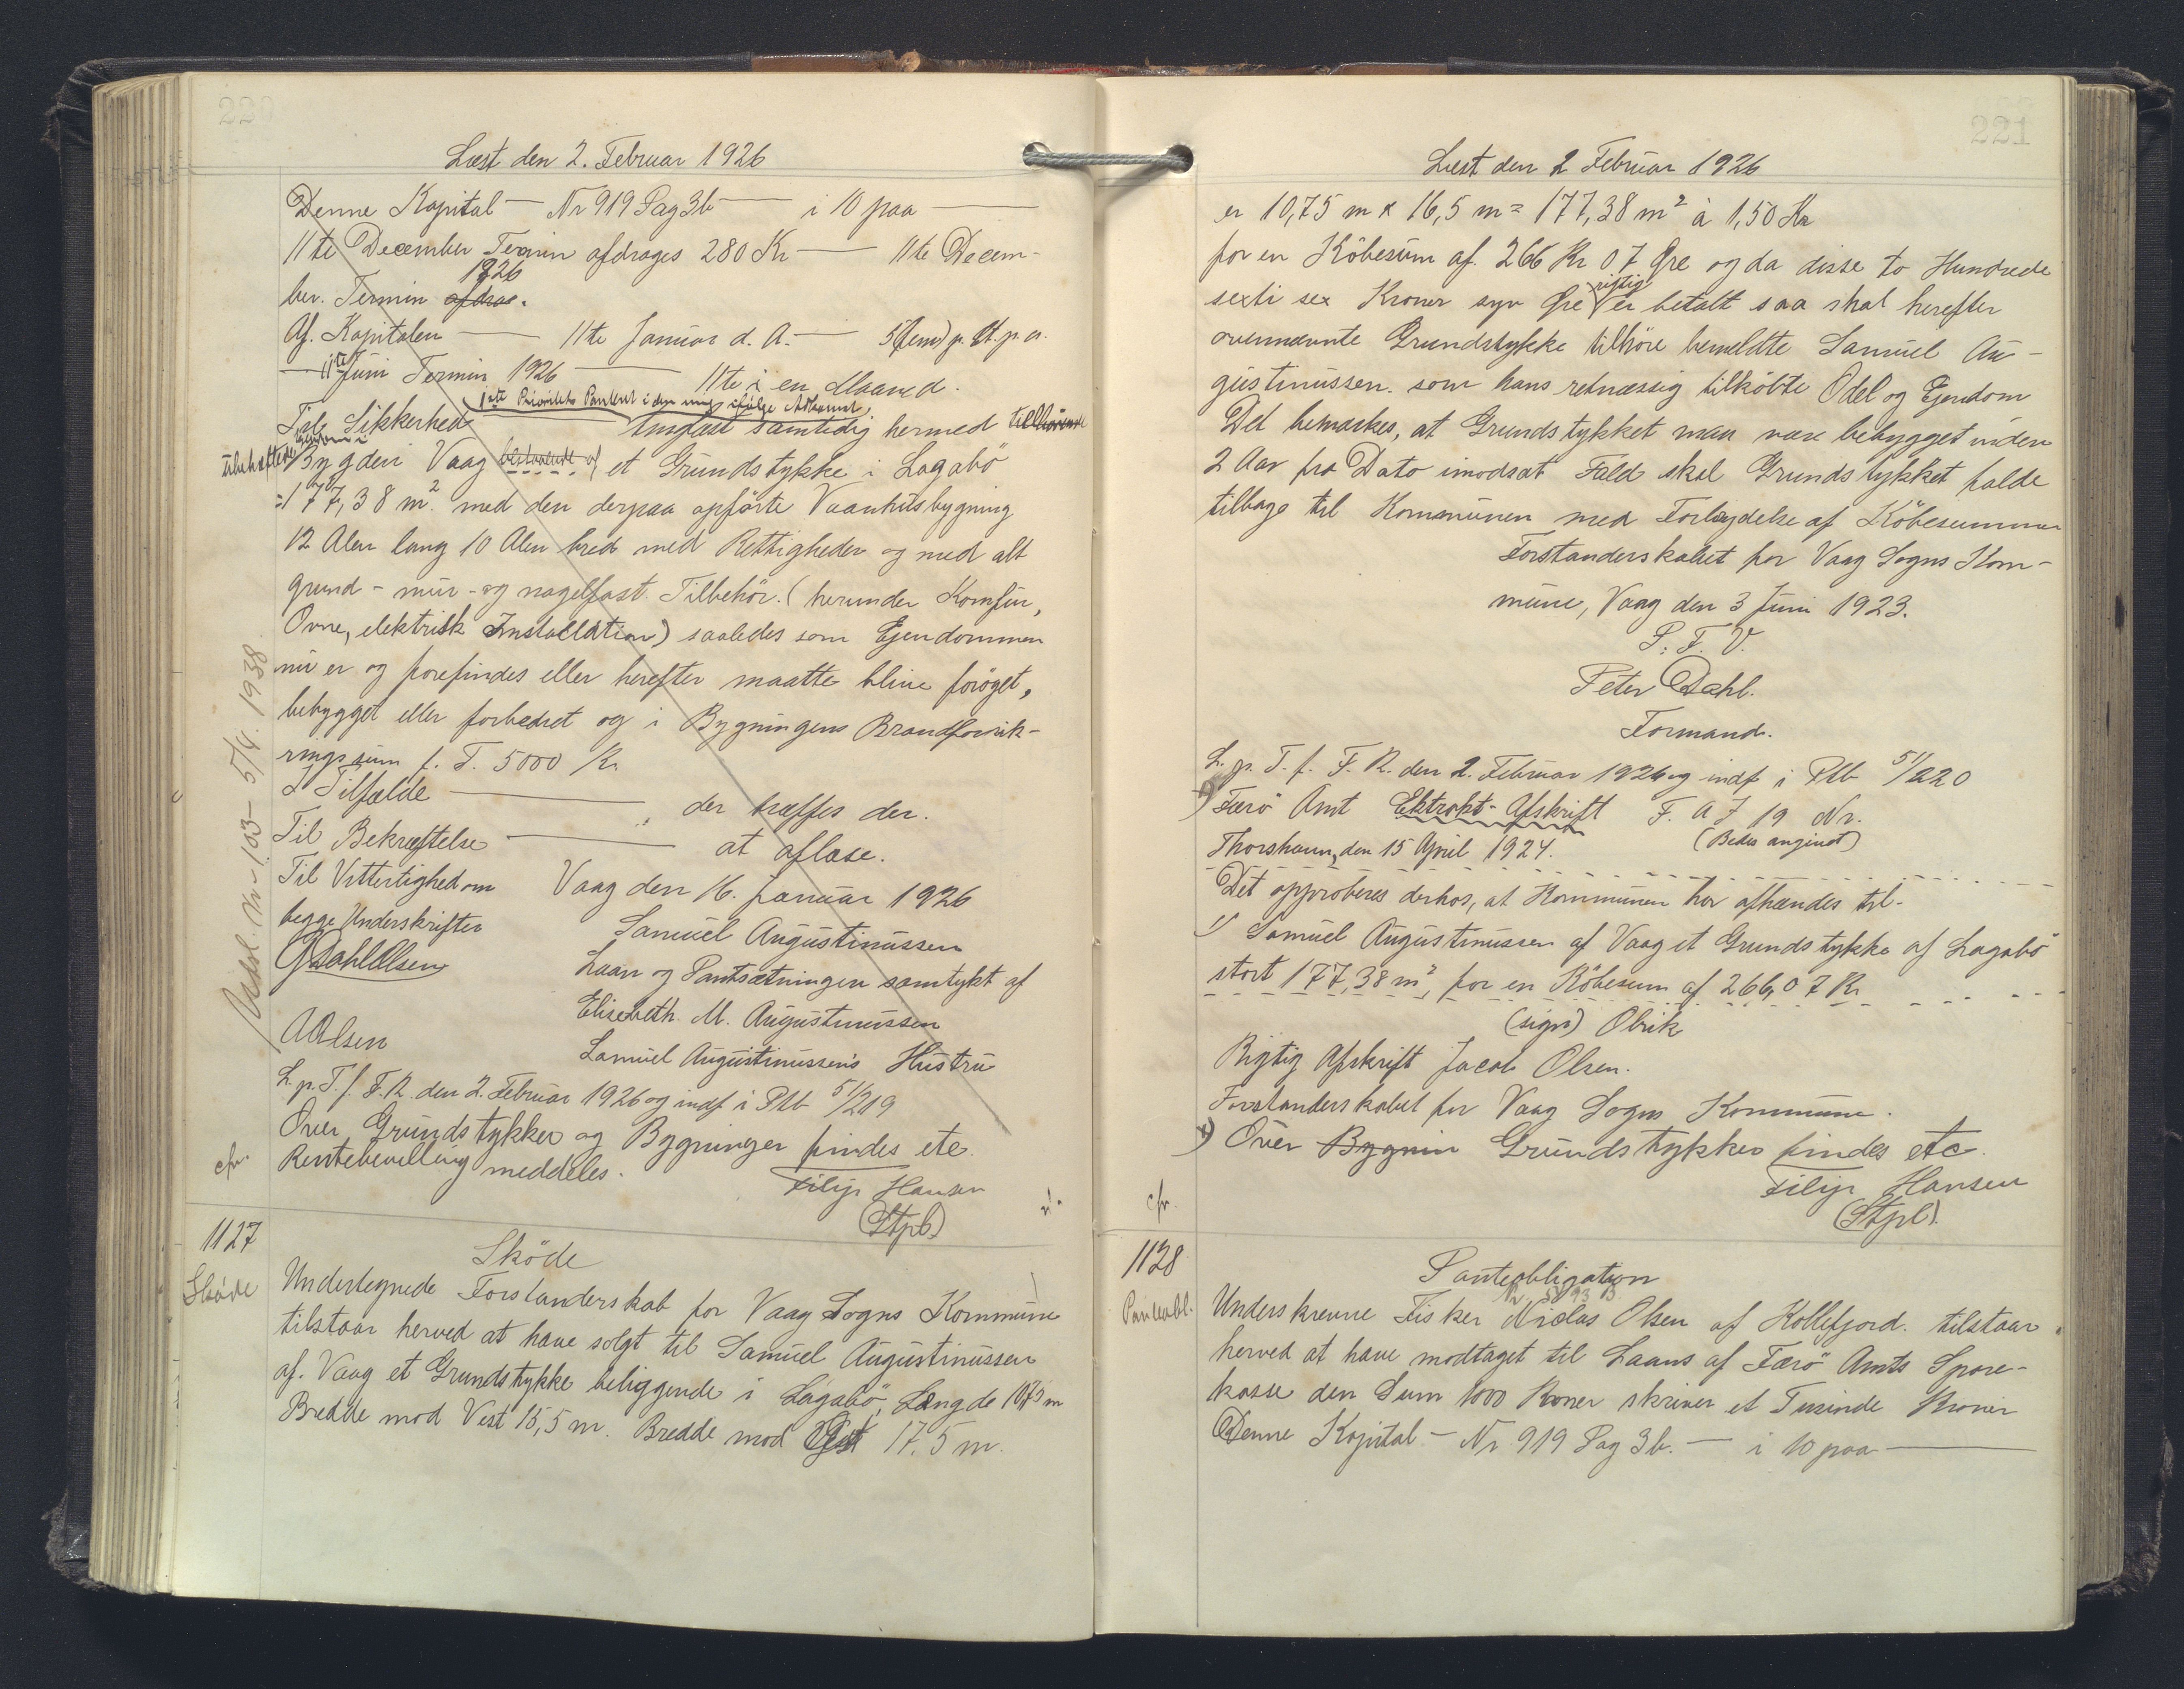 220
Læst den 2. Februar 1926
Denne Kapital — Nr 919 Pag 3b — i 10 paa —
11te December Termin afdrages 280 Kr — 11te Decem-
ber. Termin 1926 afdrag.
Af. Kapitalen — 11te Januar d. A. — 5 (fem) p. Ct. p. a.
— 11te Juni Termin 1926 — 11te i en Maaned.
1ste Prioritets Panteret i den mig ifølge Adkomst,
Til Sikkerhed — tinglæst samtidig hermed tilhörende
ubehæftede Ejendom i Bygden Vaag bestaaende af et Grundstykke i Lagabö
=177,38 m² med den derpaa opförte Vaanhusbygning
12 Alen lang 10 Alen bred med Rettigheder og med alt
grund - mur - og nagelfast Tilbehör. (herunder Komfur,
Ovne, elektrisk Installation) saaledes som Ejendommen
nu er og forefindes eller herefter maatte blive foröget,
bebygget eller forbedret og i Bygningens Brandforsik-
ringssum p. T. 5000 Kr.
I Tilfælde —, der træffes der.
Til Bekræftelse — at aflæse.
Til Vitterlighed om Vaag den 16. Januar 1926
begge Underskrifter Samuel Augustinussen
G Dahl Olsen Laan og Pantsætningen samtykt af
Elisebeth. M. Augustinussen
A Olsen Samuel Augustinussen's Hustru
L. p. T. f. F. R. den 2. Februar 1926 og indf i Ptb 51/219
Over Grundstykker og Bygninger findes etc.
cfr. Rentebevilling meddeles.
Filip Hansen
(Stpl)
Udsl. Nr. 103 - 5/4. 1938
1127
Sköde
Sköde
Undertegnede Forstanderskab for Vaag Sogns Kommune
tilstaar herved at have solgt til Samuel Augustinussen
af. Vaag et Grundstykke beliggende i Lagabö, Længde 10,75 m
Bredde mod Vest 15,5 m. Bredde mod Øst 17,5 m.
221
Læst den 2 Februar 1926
er 10,75 m x 16,5 m = 177,38 m² à 1,50 Kr
for en Köbesum af. 266 Kr 07 Øre og da disse to Hundrede
sexti sex Kroner syv Øre rigtig er betalt saa skal herefter
ovennævnte Grundstykke tilhöre bemeldte Samuel Au-
gustinussen. som hans retmæssig tilköbte Odel og Ejendom
Det bemærkes, at Grundstykket maa være bebygget inden
2 Aar fra Dato imodsat Fald skal Grundstykket falde
tilbage til Kommunen med Fortagdelse af Köbesummen
Forstanderskabet for Vaag Sogns Kom-
mune, Vaag den 3 Juni 1923.
P. F. V.
Peter Dahl.
Formand.
L. p. T. f. F. R. den 2. Februar 1926 og indf i Ptb 51/220
Færö Amt Ektrakt-Afskrift F. A J 19 Nr.
Thorshavn, den 15 April 1924. (Bedes angivet)
Det approberes derhos, at Kommunen har afhændet til-
1) Samuel Augustinussen af Vaag et Grundstykke af Lagabö
stort 177,38 m², for en Köbesum af 266,07 Kr
(sign) Obrik
Rigtig Afskrift Jacob Olsen.
Forstanderskabet for Vaag Sogns Kommune.
Over Bygnin Grundstykker findes etc.
Filip Hansen
(Stpl).
cfr.
1128
Panteobl.
Panteobligation
Underskrevne Fisker Niclas Olsen af Kollefjord. tilstaar
herved at have modtaget til Laans af Færö Amts Spare-
kasse den Sum 1000 Kroner skriver et Tusinde Kroner
Denne Kapital — Nr. 919 Pag 3b. — i 10 paa —